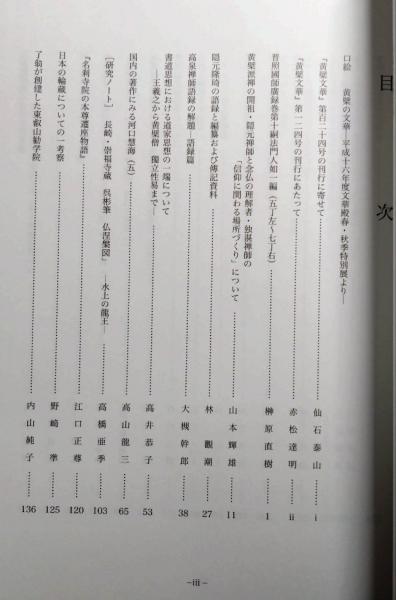 目次
口絵 黄檗の文華―平成十六年度文華殿春・秋季特別展より―
『黄檗文華』第百二十四号の刊行に寄せて 仙石泰山 i
『黄檗文華』第一二四号の刊行にあたって 赤松達明 ii
普照國師廣録巻第十嗣法門人如一編(五丁左~七丁右) 榊原直樹 1
黄檗派禅の開祖・隠元禅師と念仏の理解者・独湛禅師の
「信仰に関わる場所づくり」について 山本輝雄 11
隠元隆琦の語録と編纂および傳記資料 林觀潮 27
高泉禅師語録の解題―語録篇 大槻幹郎 38
書道思想における道家思想の一端について
―王羲之から黄檗僧 獨立性易まで― 高井恭子 53
国内の著作にみる河口慧海(五) 高山龍三 65
[研究ノート] 長崎・崇福寺蔵 呉彬筆 仏涅槃図 ―水上の龍王― 高橋亜季 103
『名刹寺院の本尊遷座物語』 江口正尊 120
日本の輪蔵についての一考察 野崎準 125
了翁が創建した東叡山勧学院 内山純子 136
–iii–